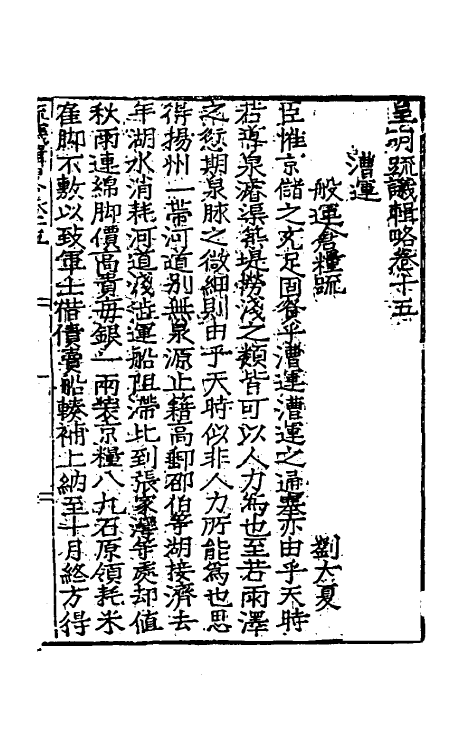 皇明疏議輯略卷十五
漕運
般運倉糧疏
劉大夏
臣惟京儲之充足固资乎漕運漕運之通塞亦由乎天時
若導泉濬渠築堤撈淺之類皆可以人力為也至若雨澤
之愆期泉脉之微細則由乎天時似非人力所能為也思
得揚州一帶河道別無泉源止藉高郵邵伯等湖接濟去
年湖水消耗河道淺澁運船阻滯比到張家灣等處却值
秋雨連綿脚價高貴每銀一兩裝京糧八九石原領耗米
隺脚不敷以致軍士借債賣船輳補上納至十月終方得